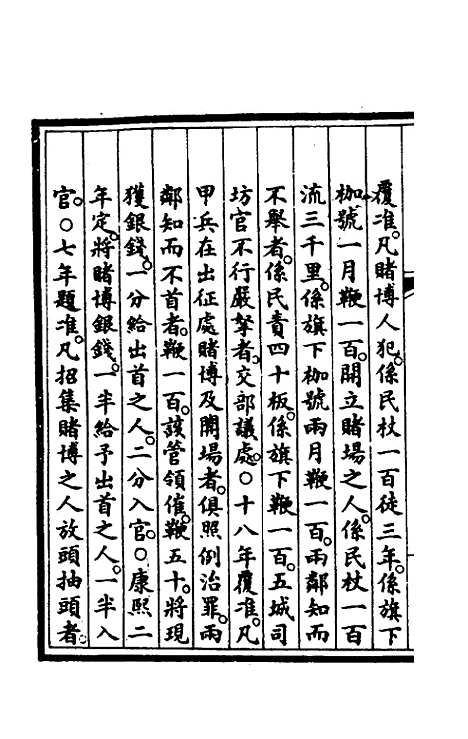 覆准。凡賭博人犯。係民杖一百徒三年。係旗下
枷號一月鞭一百。開立賭場之人。係民杖一百
流三千里。係旗下枷號兩月鞭一百。兩鄰知而
不舉者。係民責四十板。係旗下鞭一百。五城司
坊官不行嚴拏者。交部議處。○十八年覆准。凡
甲兵在出征處賭博及開場者。俱照例治罪。兩
鄰知而不首者。鞭一百。該管領催。鞭五十。將現
獲銀錢。一分給出首之人。二分入官。○康熙二
年定。將賭博銀錢。一半給予出首之人。一半入
官。○七年題准。凡招集賭博之人放頭抽頭者。